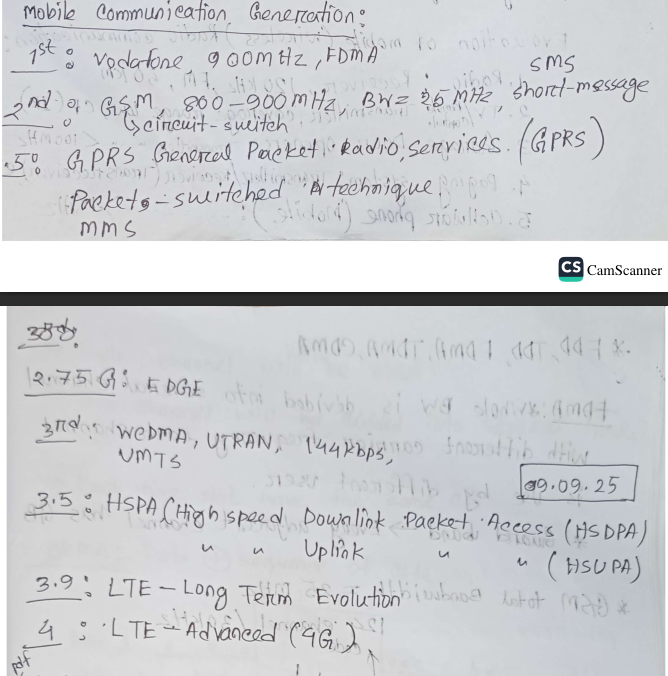 Mobile Communication Generation:
1st : Vodafone 900MHz, FDMA
SMS
2nd : GSM, 800-900MHz, BW= 25 MHz, short-message
↳ circuit-switch
.5: GPRS General Packet Radio, services. (GPRS)
Packets-switched technique.
MMS
CS CamScanner
2.75 G: EDGE
3rd: WCDMA, UTRAN, 144kbps,
UMTS
09.09.25
3.5 : HSPA (High speed Downlink Packet Access (HSDPA)
" " Uplink " " (HSUPA)
3.9: LTE - Long Term Evolution
4 : LTE - Advanced (4G)
pdf